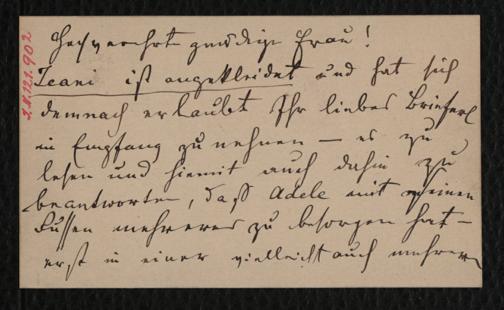 Hochverehrte gnädige Frau!
Jeani ist angekleidet und hat sich
demnach erlaubt Ihr liebes Brieferl
in Empfang zu nehmen – es zu
lesen und hiemit auch dahin zu
beantworten, daß Adele mit meinen
Füssen mehreres zu besorgen hat –
erst in einer vielleicht auch mehrern
I.N.121.902